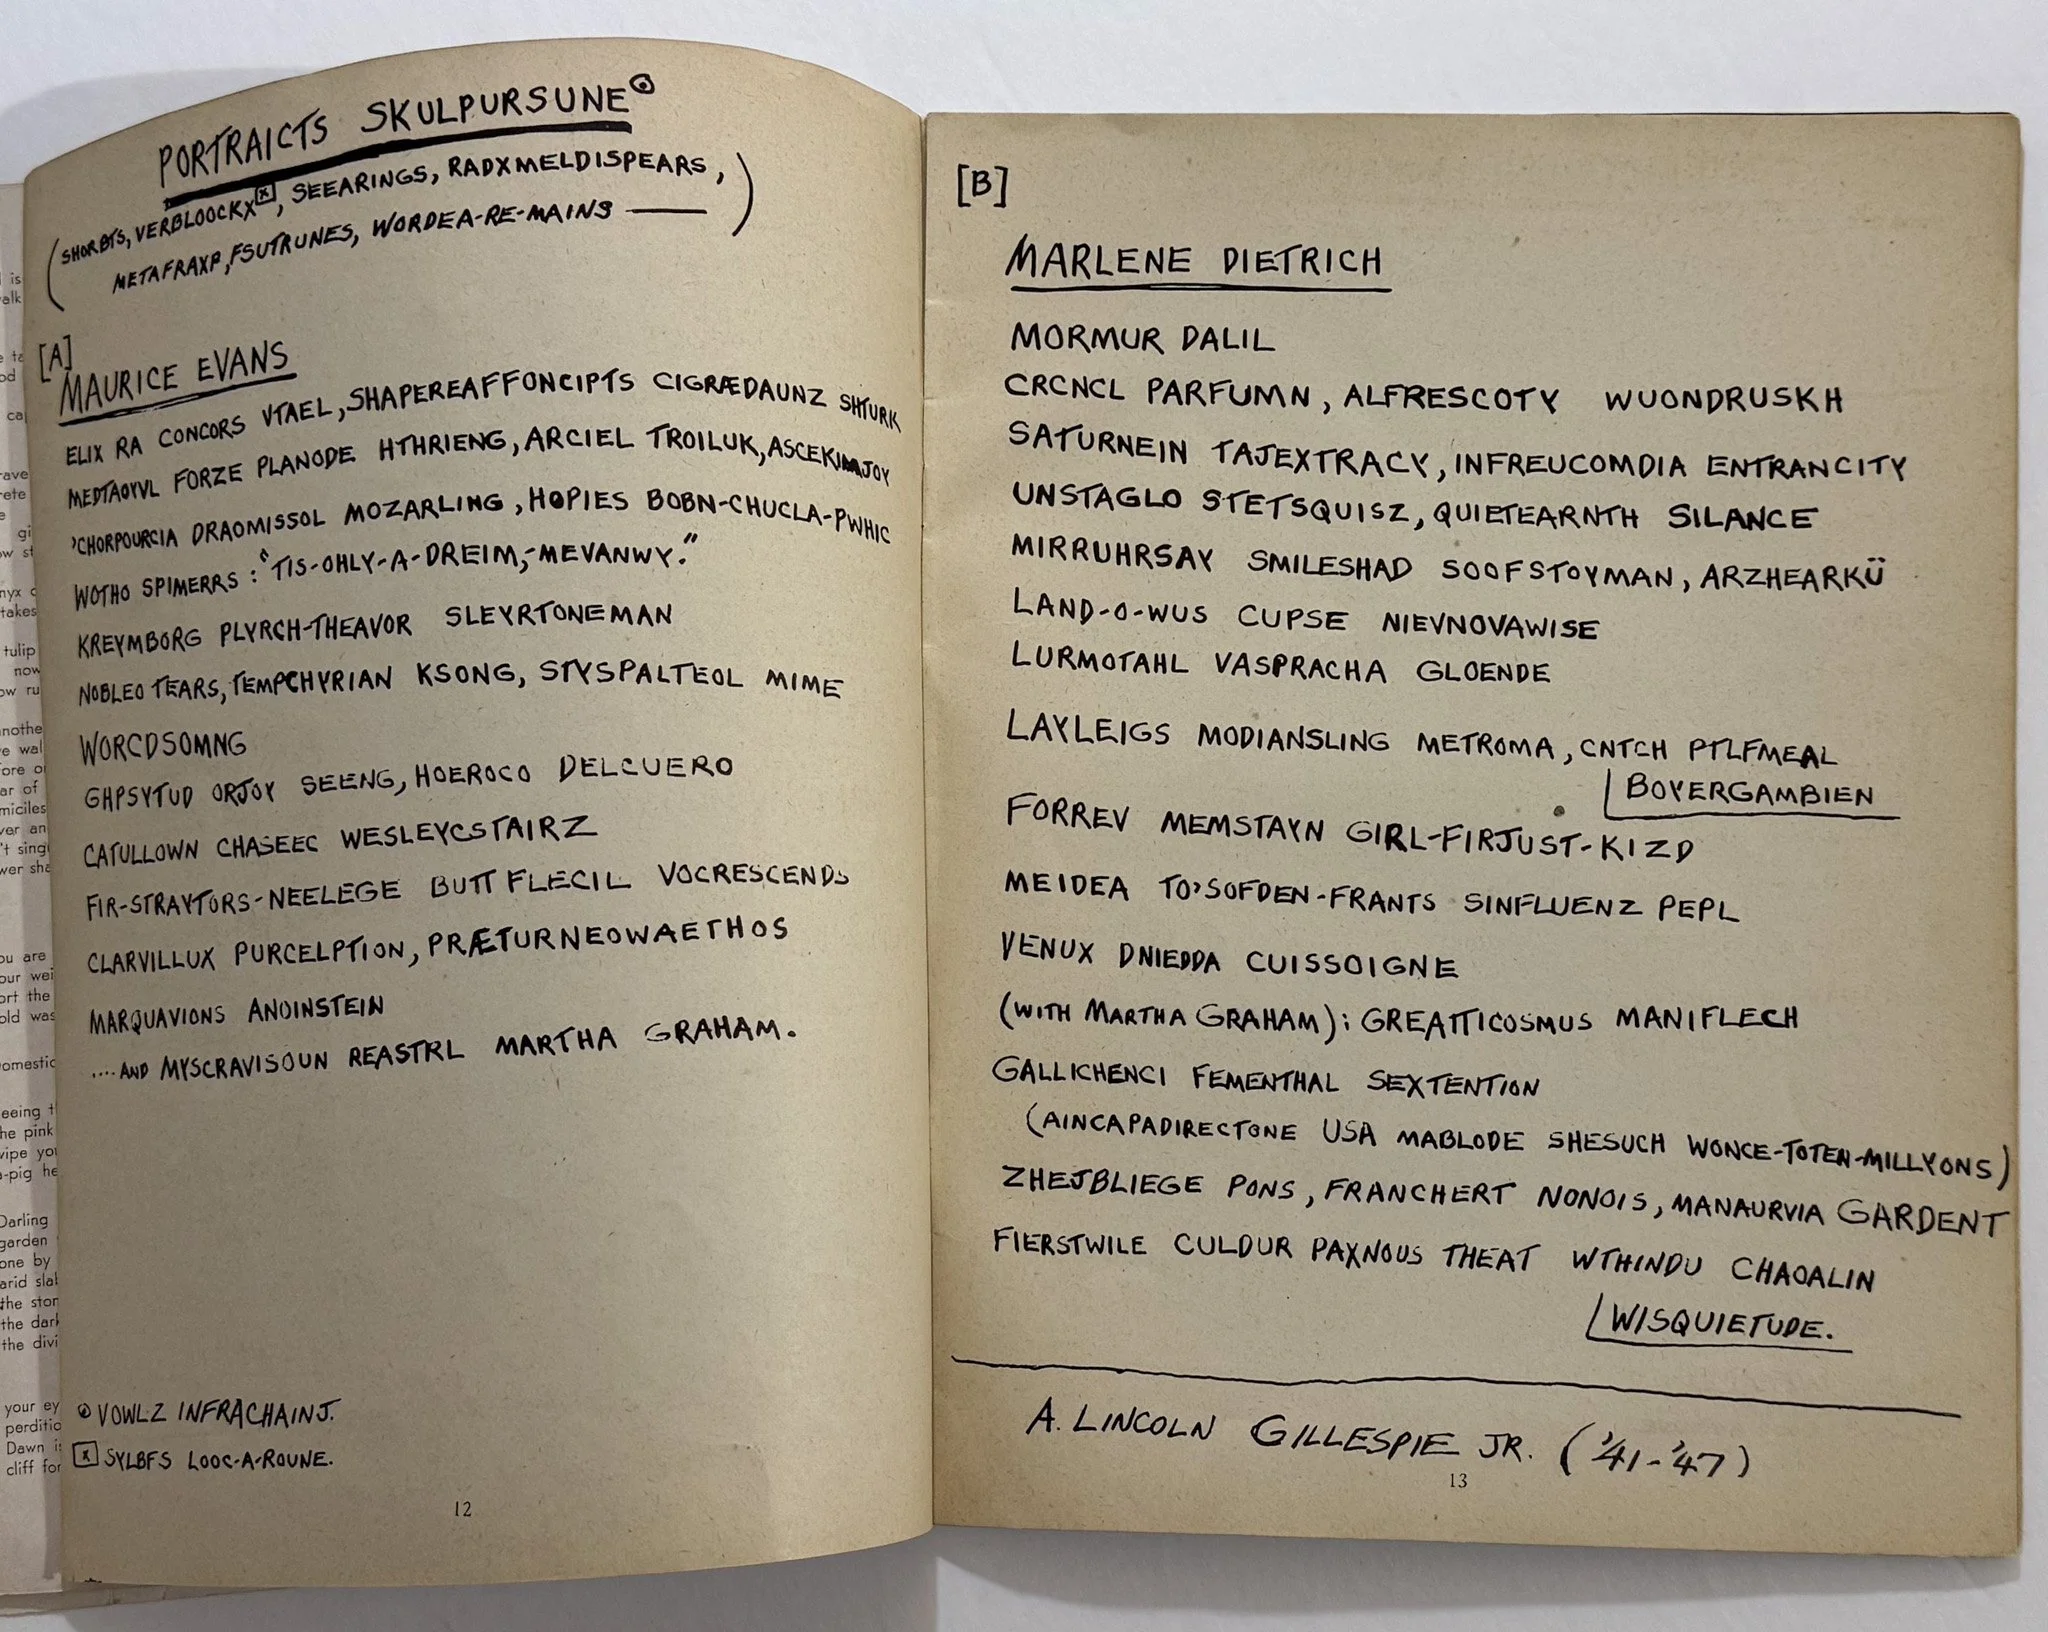 PORTRAICTS SKULPURSUNE
(SHORBTS, VERBLOOCKX[X], SEEARINGS, RADXMELDISPEARS,
METAFRAXP, FSUTRUNES, WORDEA-RE-MAINS ——)
[A]
MAURICE EVANS
ELIX RA CONCORS VTAEL, SHAPEREAFFONCIPTS CIGRÆDAUNZ SHTURK
MEDTAOYVL FORZE PLANODE HTHRIENG, ARCIEL TROILUK, ASCEKIMJOY
'CHORPOURCIA DRAOMISSOL MOZARLING, HOPIES BOBN-CHUCLA-PWHIC
WOTHO SPIMERRS: "TIS-OHLY-A-DREIM,-MEVANWY."
KREYMBORG PLYRCH-THEAVOR SLEYRTONEMAN
NOBLEO TEARS, TEMPCHYRIAN KSONG, STYSPALTEOL MIME
WORCDSOMNG
GHPSYTUD ORJOY SEENG, HOEROCO DELCUERO
CATULLOWN CHASEEC WESLEYCSTAIRZ
FIR-STRAYTORS-NEELEGE BUTT FLECIL VOCRESCENDS
CLARVILLUX PURCELPTION, PRÆTURNEOWAETHOS
MARQUAVIONS ANOINSTEIN
....AND MYSCRAVISOUN REASTRL MARTHA GRAHAM.
VOWLZ INFRACHAINJ.
[X] SYLBFS LOOC-A-ROUNE.
12
[B]
MARLENE DIETRICH
MORMUR DALIL
CRCNCL PARFUMN, ALFRESCOTY WUONDRUSKH
SATURNEIN TAJEXTRACY, INFREUCOMDIA ENTRANCITY
UNSTAGLO STETSQUISZ, QUIETEARNTH SILANCE
MIRRUHRSAY SMILESHAD SOOFSTOYMAN, ARZHEARKÜ
LAND-O-WUS CUPSE NIEVNOVAWISE
LURMOTAHL VASPRACHA GLOENDE
LAYLEIGS MODIANSLING METROMA, CNTCH PTLFMEAL
BOYERGAMBIEN
FORREV MEMSTAYN GIRL-FIRJUST-KIZD
MEIDEA TO'SOFDEN-FRANTS SINFLUENZ PEPL
VENUX DNIEDDA CUISSOIGNE
(WITH MARTHA GRAHAM): GREATTICOSMUS MANIFLECH
GALLICHENCI FEMENTHAL SEXTENTION
(AINCAPADIRECTONE USA MABLODE SHESUCH WONCE-TOTEN-MILLYONS)
ZHEJBLIEGE PONS, FRANCHERT NONOIS, MANAURVIA GARDENT
FIERSTWILE CULDUR PAXNOUS THEAT WTHINDU CHAOALIN
WISQUIETUDE.
A. LINCOLN GILLESPIE JR. ('41-'47)
13